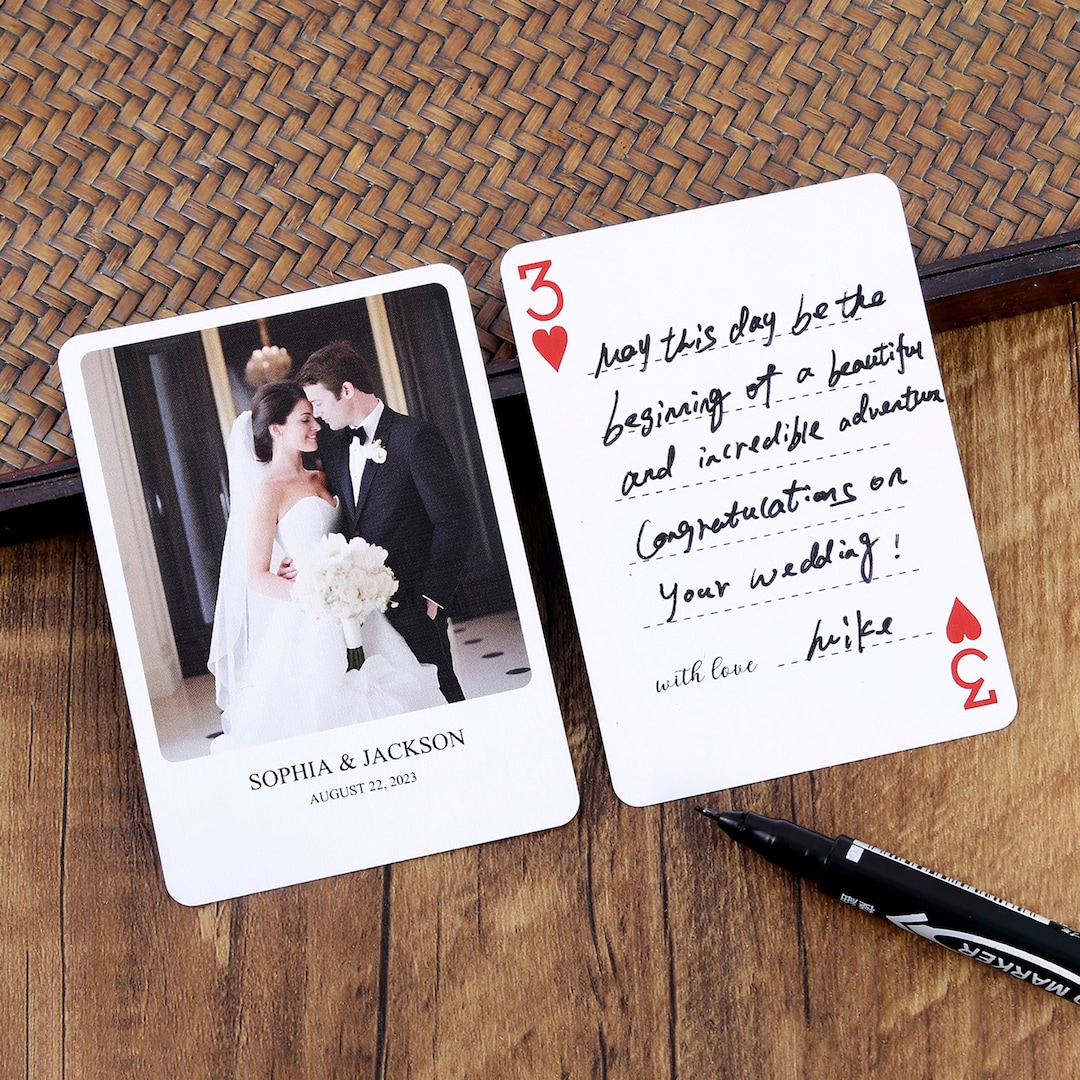 SOPHIA & JACKSON
AUGUST 22, 2023
3
May this day be the
beginning of a beautiful
and incredible adventure
Congratulations on
Your wedding!
with love Mike
3
MARKER